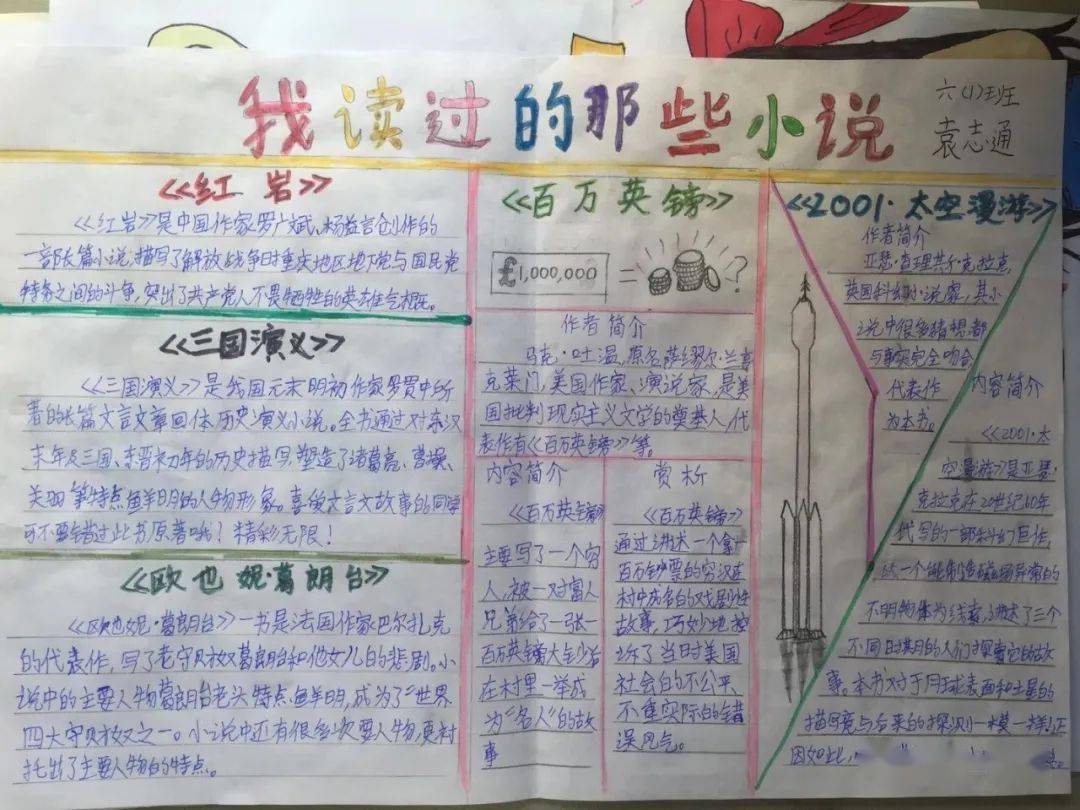 我读过的那些小说
六(1)班
袁志通
《红岩》
《红岩》是中国作家罗广斌、杨益言创作的
一部长篇小说,描写了解放战争时重庆地区地下党与国民党
特务之间的斗争,突出了共产党人不畏牺牲的英雄气概。
《三国演义》
《三国演义》是我国元末明初作家罗贯中所
著的长篇文言文章回体历史演义小说。全书通过对东汉
末年及三国、东晋初年的历史描写,塑造了诸葛亮、曹操、
关羽等特点鲜明的人物形象。喜爱文言文故事的同学
可不要错过此书原著哦!精彩无限!
《欧也妮·葛朗台》
《欧也妮·葛朗台》一书是法国作家巴尔扎克
的代表作,写了老守财奴葛朗台和他女儿的悲剧。小
说中的主要人物葛朗台老头特点鲜明,成为了“世界
四大守财奴之一。小说中还有很多次要人物,更衬
托出了主要人物的特点。
《百万英镑》
£1,000,000 = ?
作者简介
马克·吐温,原名萨缪尔·兰亨
克莱门,美国作家、演说家,是美
国批判现实主义文学的奠基人,代
表作有《百万英镑》等。
内容简介
《百万英镑》
主要写了一个穷
人,被一对富人
兄弟给了一张一
百万英镑大钞后
在村里一举成
为“名人”的故
事
赏析
《百万英镑》
通过讲述一个拿
百万钞票的穷汉在
村中成名的戏剧性
故事,巧妙地
了当时美国
社会的不公平、
不重实际的错
误风气。
《2001·太空漫游》
作者简介
亚瑟·查理共尔·克拉克,
英国科幻小说家,其小
说中很多猜想都
与事实完全吻合
代表作
为本书。
内容简介
《2001·太
空漫游》是亚瑟·
克拉克在20世纪60年
代写的一部科幻巨作,
以一个能制造磁场异常的
不明物体为线索,讲述了三个
不同时期的人们探索它的故
事。本书对于月球表面和土星的
描写竟与后来的探测一模一样!正
因如此,